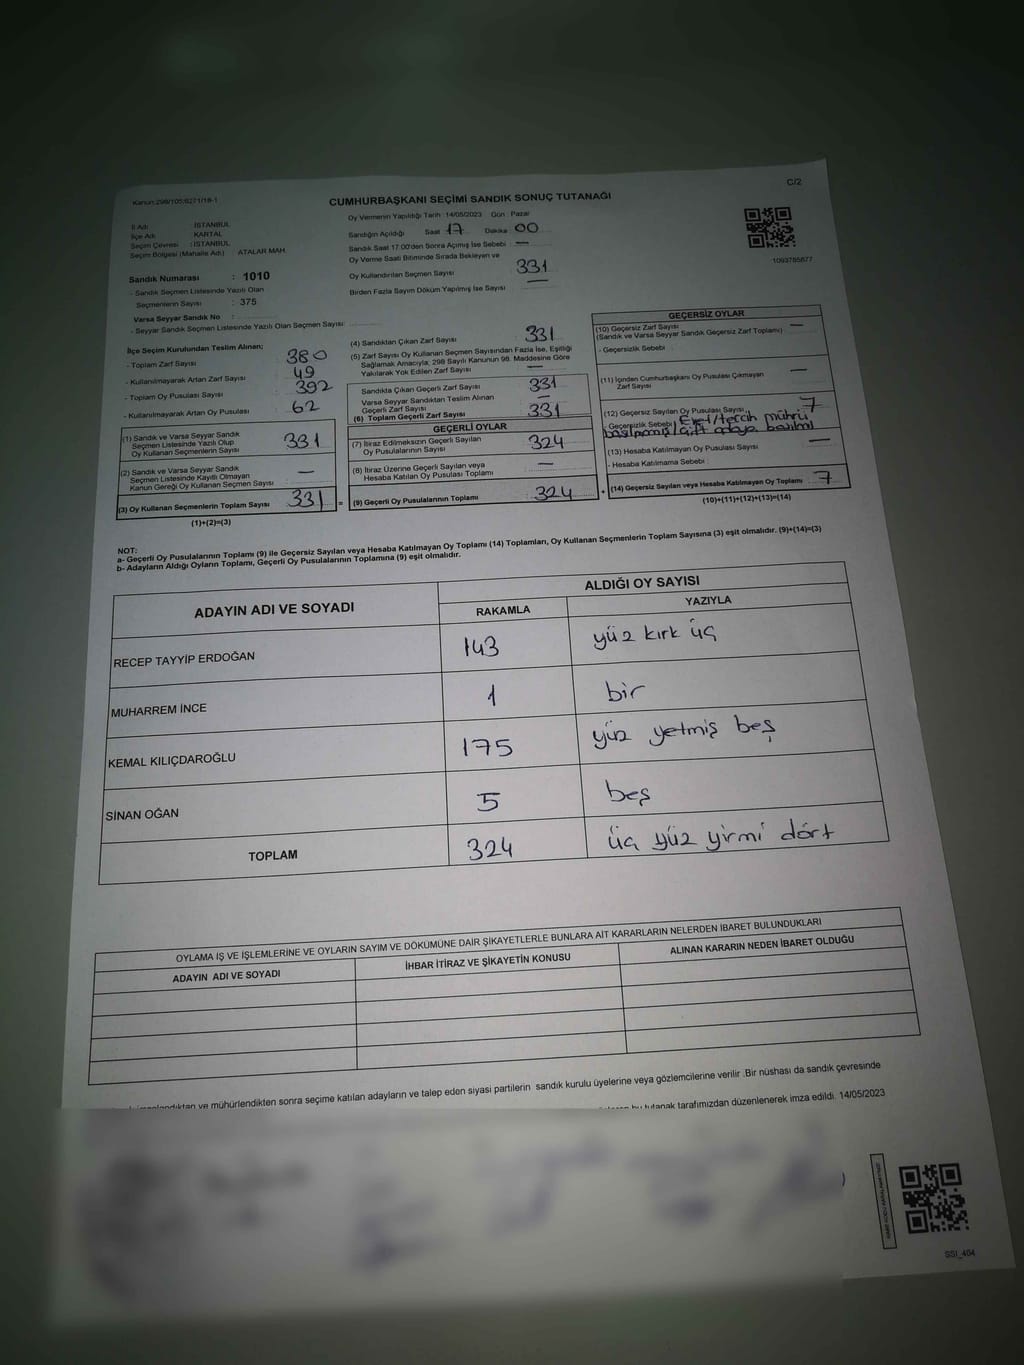 Kanun:298/105;6271/18-1
C/2
CUMHURBAŞKANI SEÇİMİ SANDIK SONUÇ TUTANAĞI
İl Adı : İSTANBUL
İlçe Adı : KARTAL
Seçim Çevresi : İSTANBUL
Seçim Bölgesi (Mahalle Adı) ATALAR MAH.
Sandık Numarası : 1010
- Sandık Seçmen Listesinde Yazılı Olan
Seçmenlerin Sayısı : 375
Varsa Seyyar Sandık No :
- Seyyar Sandık Seçmen Listesinde Yazılı Olan Seçmen Sayısı:
Oy Vermenin Yapıldığı Tarih :14/05/2023 Gün : Pazar
Sandığın Açıldığı Saat 17 Dakika 00
Sandık Saat 17:00'den Sonra Açımış İse Sebebi —
Oy Verme Saati Bitiminde Sırada Bekleyen ve
Oy Kullandırılan Seçmen Sayısı 331
Birden Fazla Sayım Döküm Yapılmış İse Sayısı —
1093785877
İlçe Seçim Kurulundan Teslim Alınan;
- Toplam Zarf Sayısı 380
- Kullanılmayarak Artan Zarf Sayısı 49
- Toplam Oy Pusulası Sayısı 392
- Kullanılmayarak Artan Oy Pusulası 62
(1) Sandık ve Varsa Seyyar Sandık
Seçmen Listesinde Yazılı Olup
Oy Kullanan Seçmenlerin Sayısı 331
(2) Sandık ve Varsa Seyyar Sandık
Seçmen Listesinde Kayıtlı Olmayan
Kanun Gereği Oy Kullanan Seçmen Sayısı —
(3) Oy Kullanan Seçmenlerin Toplam Sayısı 331
(1)+(2)=(3)
(4) Sandıktan Çıkan Zarf Sayısı 331
(5) Zarf Sayısı Oy Kullanan Seçmen Sayısından Fazla İse, Eşitliği
Sağlamak Amacıyla, 298 Sayılı Kanunun 98. Maddesine Göre
Yakılarak Yok Edilen Zarf Sayısı —
Sandıkta Çıkan Geçerli Zarf Sayısı 331
Varsa Seyyar Sandıktan Teslim Alınan
Geçerli Zarf Sayısı —
(6) Toplam Geçerli Zarf Sayısı 331
GEÇERLİ OYLAR
(7) İtiraz Edilmeksizin Geçerli Sayılan
Oy Pusulasının Sayısı 324
(8) İtiraz Üzerine Geçerli Sayılan veya
Hesaba Katılan Oy Pusulası Toplamı —
= (9) Geçerli Oy Pusulalarının Toplamı 324
GEÇERSİZ OYLAR
(10) Geçersiz Zarf Sayısı —
(Sandık ve Varsa Seyyar Sandık Geçersiz Zarf Toplamı)
- Geçersizlik Sebebi :
(11) İçinden Cumhurbaşkanı Oy Pusulası Çıkmayan
Zarf Sayısı —
(12) Geçersiz Sayılan Oy Pusulası Sayısı 7
- Geçersizlik Sebebi Evet/tercih mührü
basılmamış/Çift adaya basılmış
(13) Hesaba Katılmayan Oy Pusulası Sayısı —
- Hesaba Katılmama Sebebi :
+ (14) Geçersiz Sayılan veya Hesaba Katılmayan Oy Toplamı 7
(10)+(11)+(12)+(13)=(14)
NOT:
a- Geçerli Oy Pusulalarının Toplamı (9) ile Geçersiz Sayılan veya Hesaba Katılmayan Oy Toplamı (14) Toplamları, Oy Kullanan Seçmenlerin Toplam Sayısına (3) eşit olmalıdır. (9)+(14)=(3)
b- Adayların Aldığı Oyların Toplamı, Geçerli Oy Pusulalarının Toplamına (9) eşit olmalıdır.
ADAYIN ADI VE SOYADI ALDIĞI OY SAYISI
RAKAMLA YAZIYLA
RECEP TAYYİP ERDOĞAN 143 yüz kırk üç
MUHARREM İNCE 1 bir
KEMAL KILIÇDAROĞLU 175 yüz yetmiş beş
SİNAN OĞAN 5 beş
TOPLAM 324 üç yüz yirmi dört
OYLAMA İŞ VE İŞLEMLERİNE VE OYLARIN SAYIM VE DÖKÜMÜNE DAİR ŞİKAYETLERLE BUNLARA AİT KARARLARIN NELERDEN İBARET BULUNDUKLARI
ADAYIN ADI VE SOYADI İHBAR İTİRAZ VE ŞİKAYETİN KONUSU ALINAN KARARIN NEDEN İBARET OLDUĞU
mühürlendikten sonra seçime katılan adayların ve talep eden siyasi partilerin sandık kurulu üyelerine veya gözlemcilerine verilir .Bir nüshası da sandık çevresinde
bu tutanak tarafımızdan düzenlenerek imza edildi. 14/05/2023
SSI_404